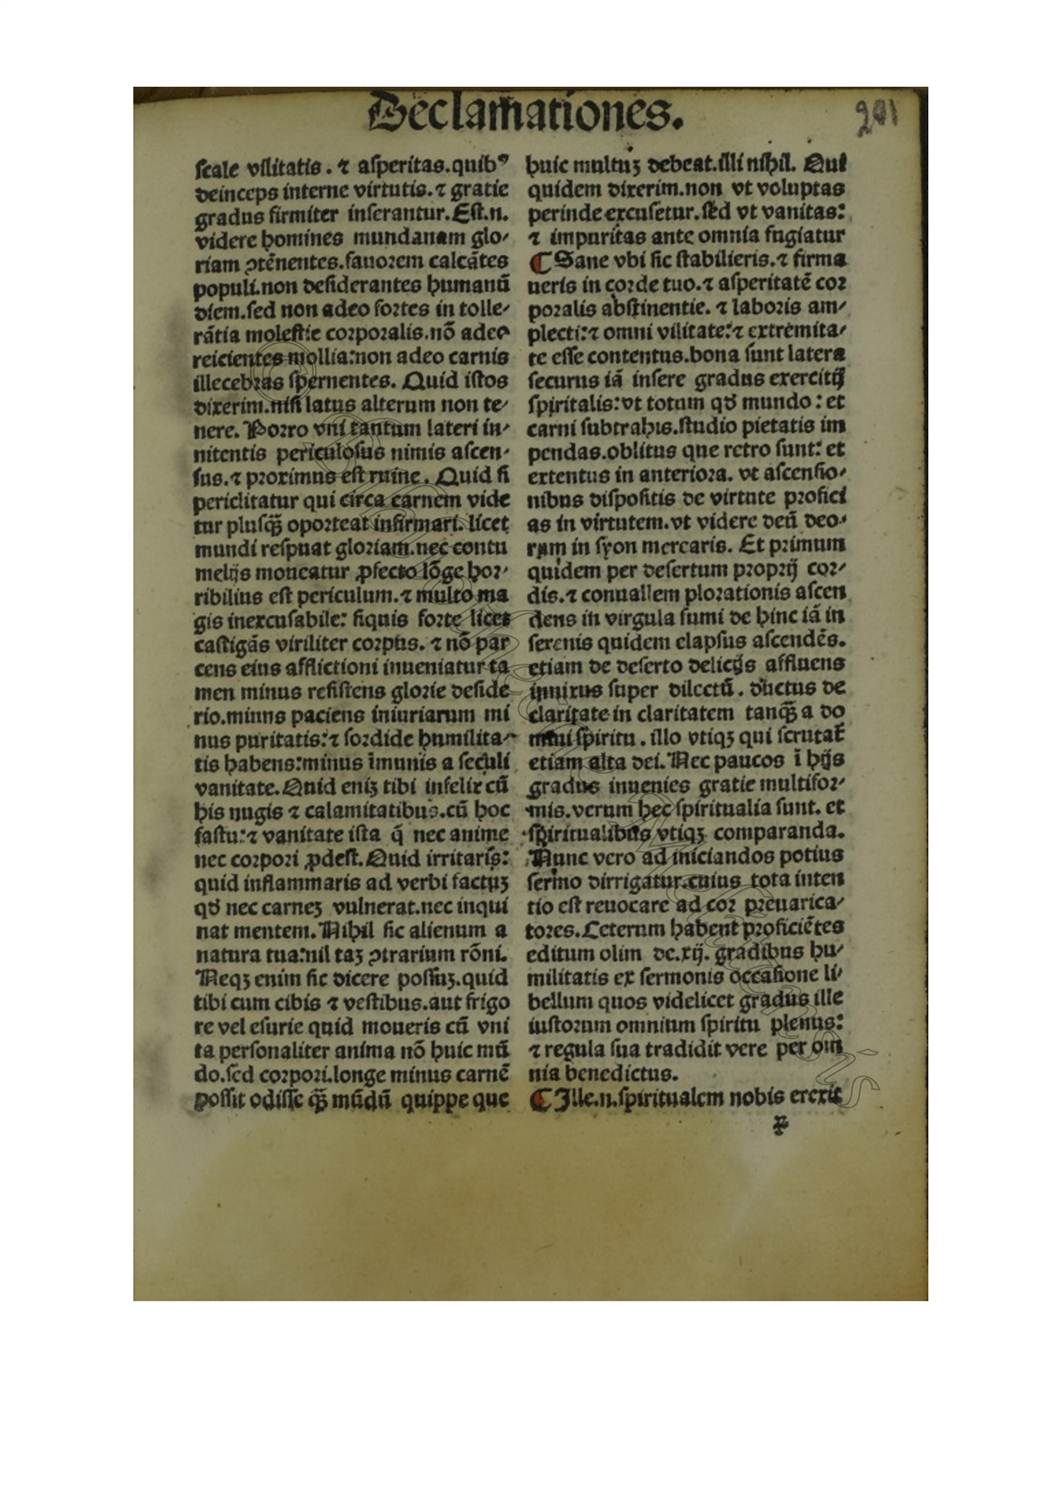 Declamationes.
201
scale vilitatis. ⁊ asperitas.quibꝰ
deinceps interne virtutis.⁊ gratie
gradus firmiter inserantur.Est.n.
videre homines mundanam glo⸗
riam ↄtēnentes.fauorem calcātes
populi.non desiderantes humanū
diem.sed non adeo fortes in tolle⸗
rātia molestie corporalis.nō adeo
reicientes mollia:non adeo carnis
illecebras spernentes. Quid istos
dixerim.nisi latus alterum non te⸗
nere. Porro vni tantum lateri in⸗
nitentis periculosus nimis ascen⸗
sus.⁊ proximus est ruine. Quid si
periclitatur qui circa carnem vide
tur plusq̄ȝ oporteat infirmari. licet
mundi respuat gloriam.nec contu
melijs moueatur ꝓfecto lōge hor⸗
ribilius est periculum.⁊ multo ma
gis inexcusabile: siquis forte licet
castigās viriliter corpus. ⁊ nō par
cens eius afflictioni inueniatur ta
men minus resistens glorie deside
rio.minus paciens iniuriarum mi
nus puritatis:⁊ sordide humilita⸗
tis habens:minus īmunis a seculi
vanitate.Quid eniȝ tibi infelix cū
his nugis ⁊ calamitatibus.cū hoc
fastu:⁊ vanitate ista q̄ nec anime
nec corpori ꝓdest.Quid irritaris:
quid inflammaris ad verbi factuȝ
qđ nec carneȝ vulnerat.nec inqui
nat mentem.Nihil sic alienum a
natura tua:nil taȝ ↄtrarium rōni.
Neqȝ enim sic dicere possuȝ.quid
tibi cum cibis ⁊ vestibus.aut frigo
re vel esurie quid moueris cū vni
ta personaliter anima nō huic mū
do.sed corpori.longe minus carnē
possit odisse q̄ȝ mūdū quippe que
huic multuȝ debeat.illi nihil. Qui
quidem dixerim.non vt voluptas
perinde excusetur.sed vt vanitas:
⁊ impuritas ante omnia fugiatur
¶Sane vbi sic stabilieris.⁊ firma
ueris in corde tuo.⁊ asperitatē cor
poralis abstinentie. ⁊ laboris am⸗
plecti:⁊ omni vilitate:⁊ extremita⸗
te esse contentus.bona sunt latera
securus iā insere gradus exercitij
spiritalis:vt totum qđ mundo: et
carni subtrahis.studio pietatis im
pendas.oblitus que retro sunt: et
extentus in anteriora. vt ascensio⸗
nibus dispositis de virtute profici
as in virtutem.vt videre deū deo⸗
rum in syon mercaris. Et primum
quidem per desertum proprij cor⸗
dis.⁊ conuallem plorationis ascen
dens in virgula fumi de hinc iā in
serenis quidem elapsus ascendēs.
etiam de deserto delicijs affluens
innixus super dilectū. ductus de
claritate in claritatem tanq̄ȝ a do
mini spiritu. illo vtiqȝ qui scrutat̄
etiam alta dei.Nec paucos ī hijs
gradus inuenies gratie multifor⸗
mis.verum hec spiritualia sunt. et
spiritualibus vtiqȝ comparanda.
Nunc vero ad iniciandos potius
sermo dirrigatur.cuius tota inten
tio est reuocare ad cor preuarica⸗
tores.Ceterum habent proficiētes
editum olim de.xij. gradibus hu⸗
militatis ex sermonis occasione li⸗
bellum quos videlicet gradus ille
iustorum omnium spiritu plenus:
⁊ regula sua tradidit vere per om
nia benedictus.
¶Ille.n.spiritualem nobis erexit